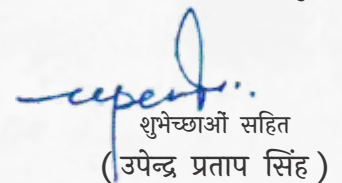 शुभेच्छाओं सहित
( उपेन्द्र प्रताप सिंह )